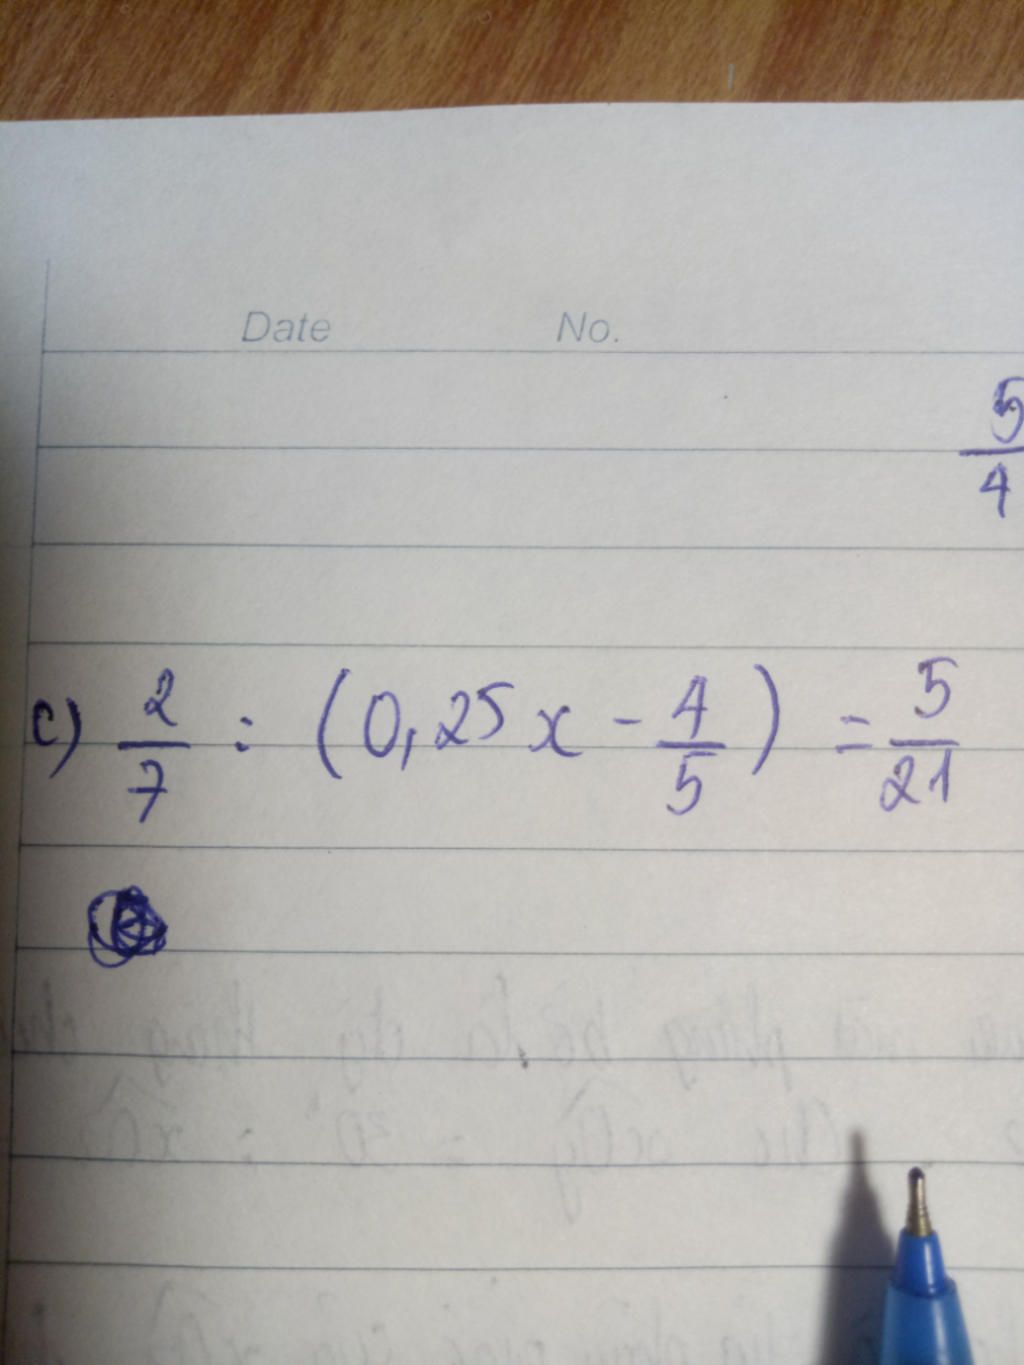 Date No.
5/4
c) 2/7 : (0,25x - 4/5) = 5/21